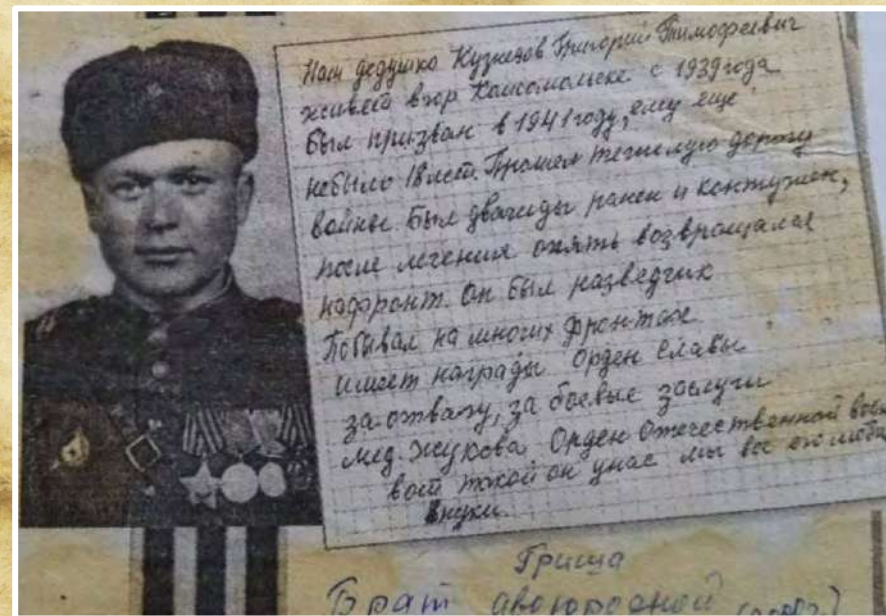 Наш дедушка Кузнецов Григорий Тимофеевич
живёт вгор Комсомольске с 1939 года
был призван в 1941 году, ему еще
небыло 18 лет. Прошел тежелую дорогу
войны. Был дважды ранен и контужен,
после лечения опять возвращался
нафронт. Он был разведчик
Побывал на многих фронтах
имеет награды Орден Славы
за отвагу, за боевые заслуги
мед. Жукова Орден Отечественной
вот такой он унас мы все его
внуки.
Гриша
Брат двоюродный